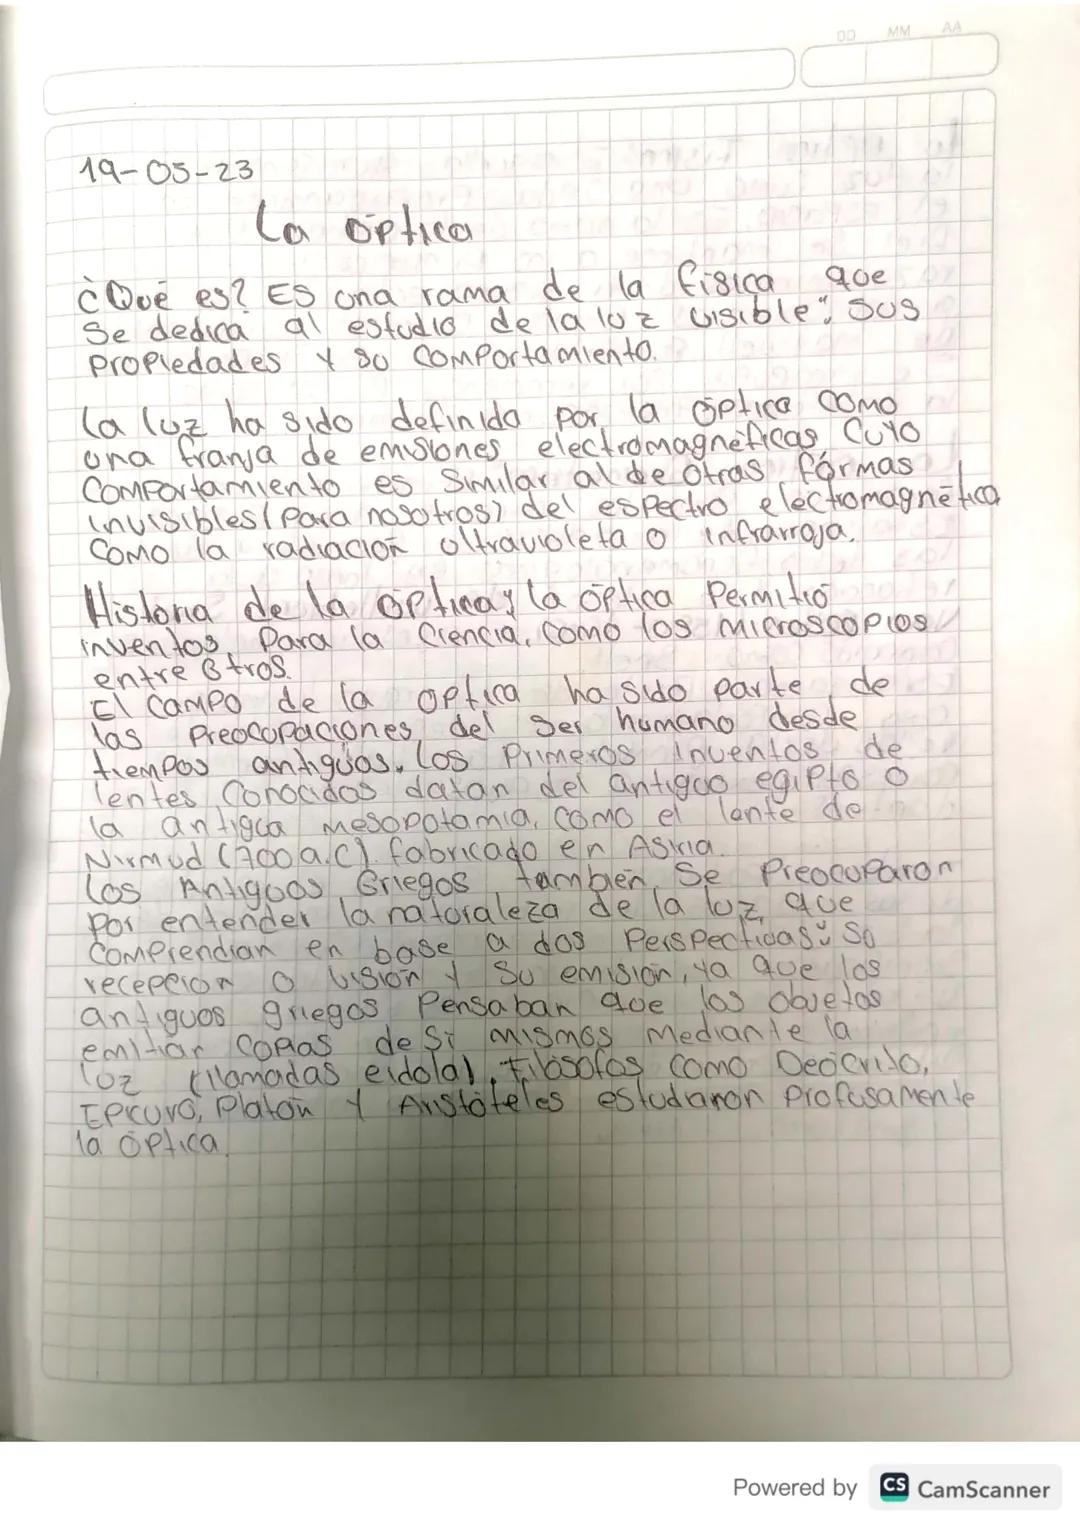 DD MM AA
19-05-23
La óptica
¿Qué es? Es una rama de la física que
se dedica al estudio de la luz visible: sus
propiedades y su comportamiento.
La luz ha sido definida por la óptica como
una franja de emisiones electromagnéticas cuyo
comportamiento es similar al de otras fórmas
invisibles (para nosotros) del espectro electromagnética
como la radiación ultravioleta o infrarroja.
Historia de la óptica: la óptica permitió
inventos para la ciencia, como los microscopios
entre otros.
El campo de la optica ha sido parte de
las preocupaciones del ser humano desde
tiempos antigüos. Los primeros inventos de
lentes conocidos datan del antiguo egipto o
la antigua mesopotamia, como el lente de
Nirmud (700 a.C). fabricado en Asiria.
Los Antiguos Griegos también se preocuparon
por entender la naturaleza de la luz, que
comprendian en base a dos perspectivas: su
recepción o visión y su emisión, ya que los
antiguos griegos pensaban que los objetos
emitiar copias de sí mismos mediante la
luz (llamadas eidola). Filósofos como Deócrito,
Epicuro, Platón y Aristóteles estudaron profusamente
la óptica.
Powered by CS CamScanner